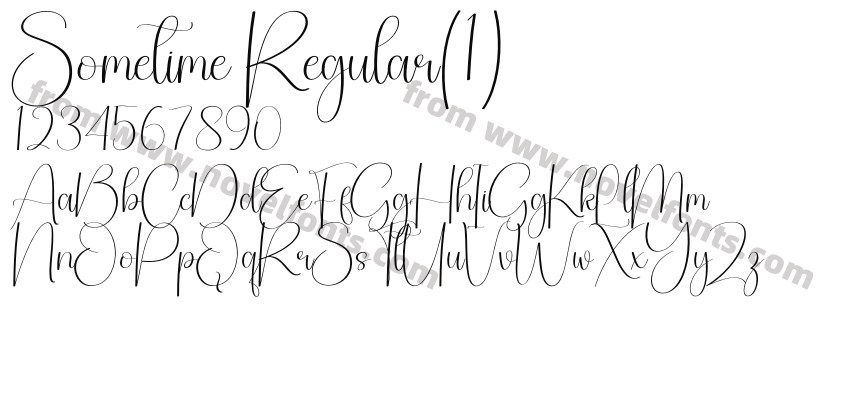 Sometime Regular(1)
1234567890
AaBbCcDdEeFfGgHhIiGgKkLlMm
NnOoPpQqRrSsTtUuVvWwXxYyZz
from www.novelfonts.com
from www.novelfonts.com